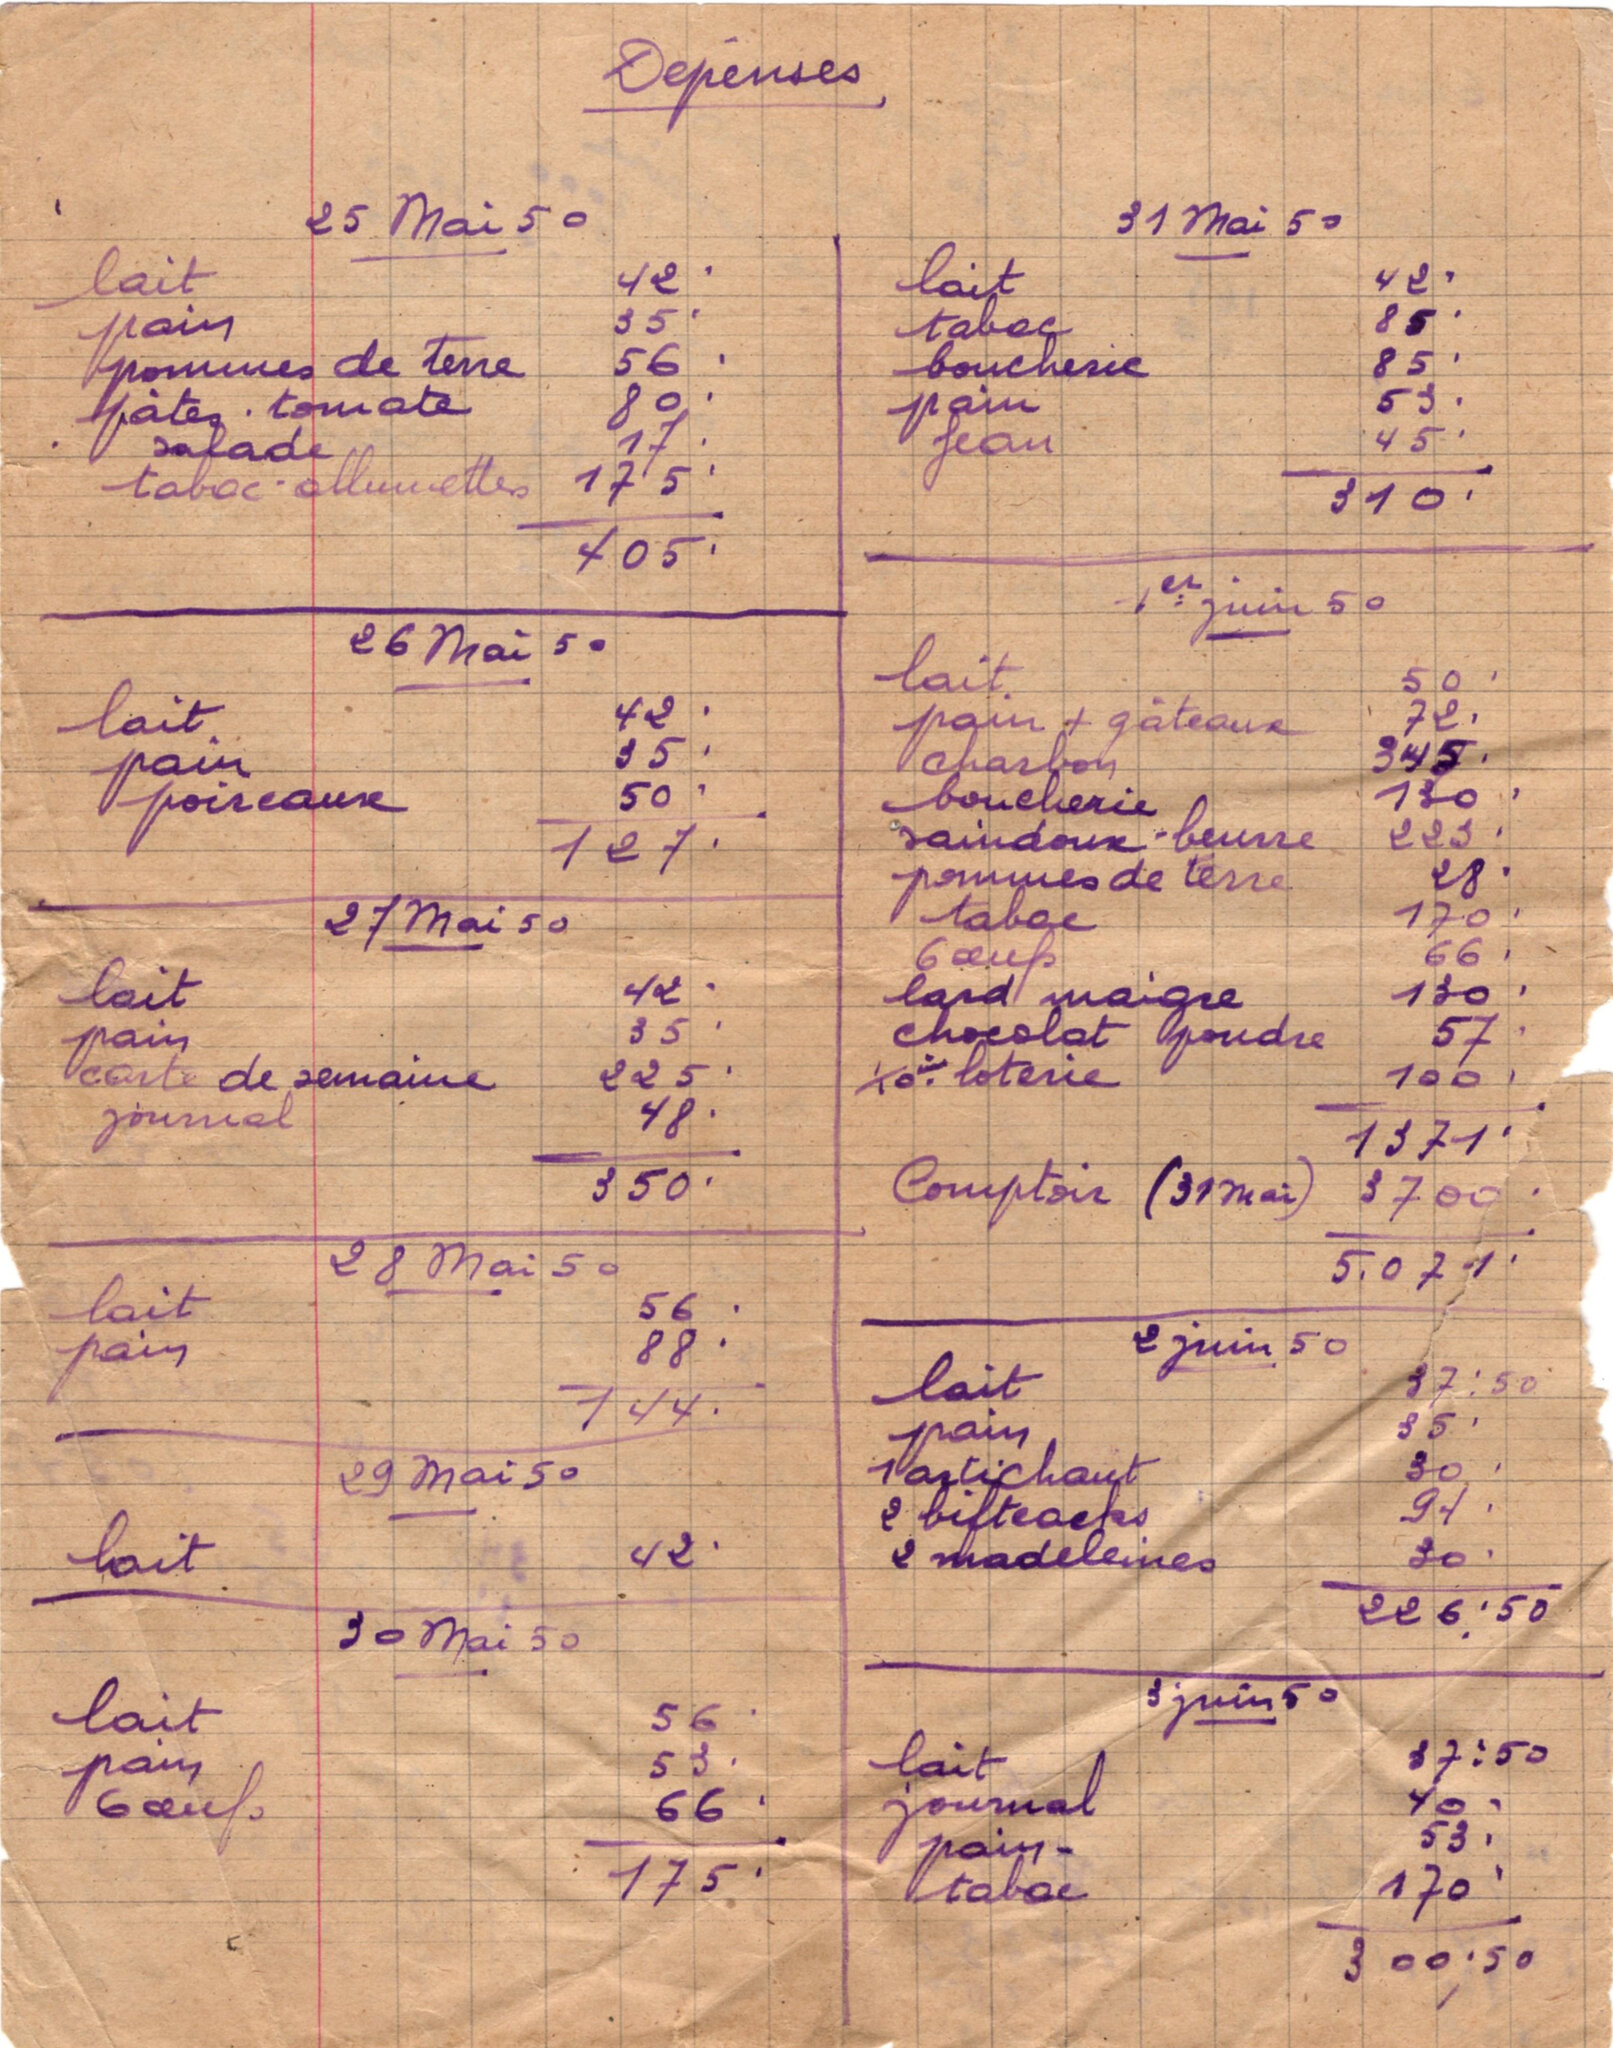 Dépenses
25 Mai 50
lait 42.
pain 35.
pommes de terre 56.
pâtes. tomate 80.
salade 17.
tabac-allumettes 175.
405.
26 Mai 50
lait 42.
pain 35.
poireaux 50.
127.
27 Mai 50
lait 42.
pain 35.
carte de semaine 225.
journal 48.
350.
28 Mai 50
lait 56.
pain 88.
144.
29 Mai 50
lait 42.
30 Mai 50
lait 56.
pain 53.
6 œufs 66.
175.
31 Mai 50
lait 42.
tabac 85.
boucherie 85.
pain 53.
Jean 45.
310.
1er juin 50
lait 50.
pain + gâteaux 72.
charbon 345.
boucherie 130.
saindoux-beurre 223.
pommes de terre 28.
tabac 170.
6 œufs 66.
lard maigre 130.
chocolat poudre 57.
loterie 100.
1371.
Comptoir (31 Mai) 3700.
5.071.
2 juin 50
lait 37:50
pain 35.
1 artichaut 30.
2 bifteacks 94.
2 madeleines 30.
226:50
3 juin 50
lait 37:50
journal 40.
pain - 53.
tabac 170.
300.50